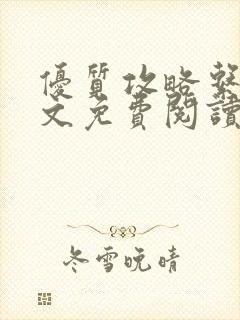 優質攻略繫
文免費閱讀
冬雪晚晴